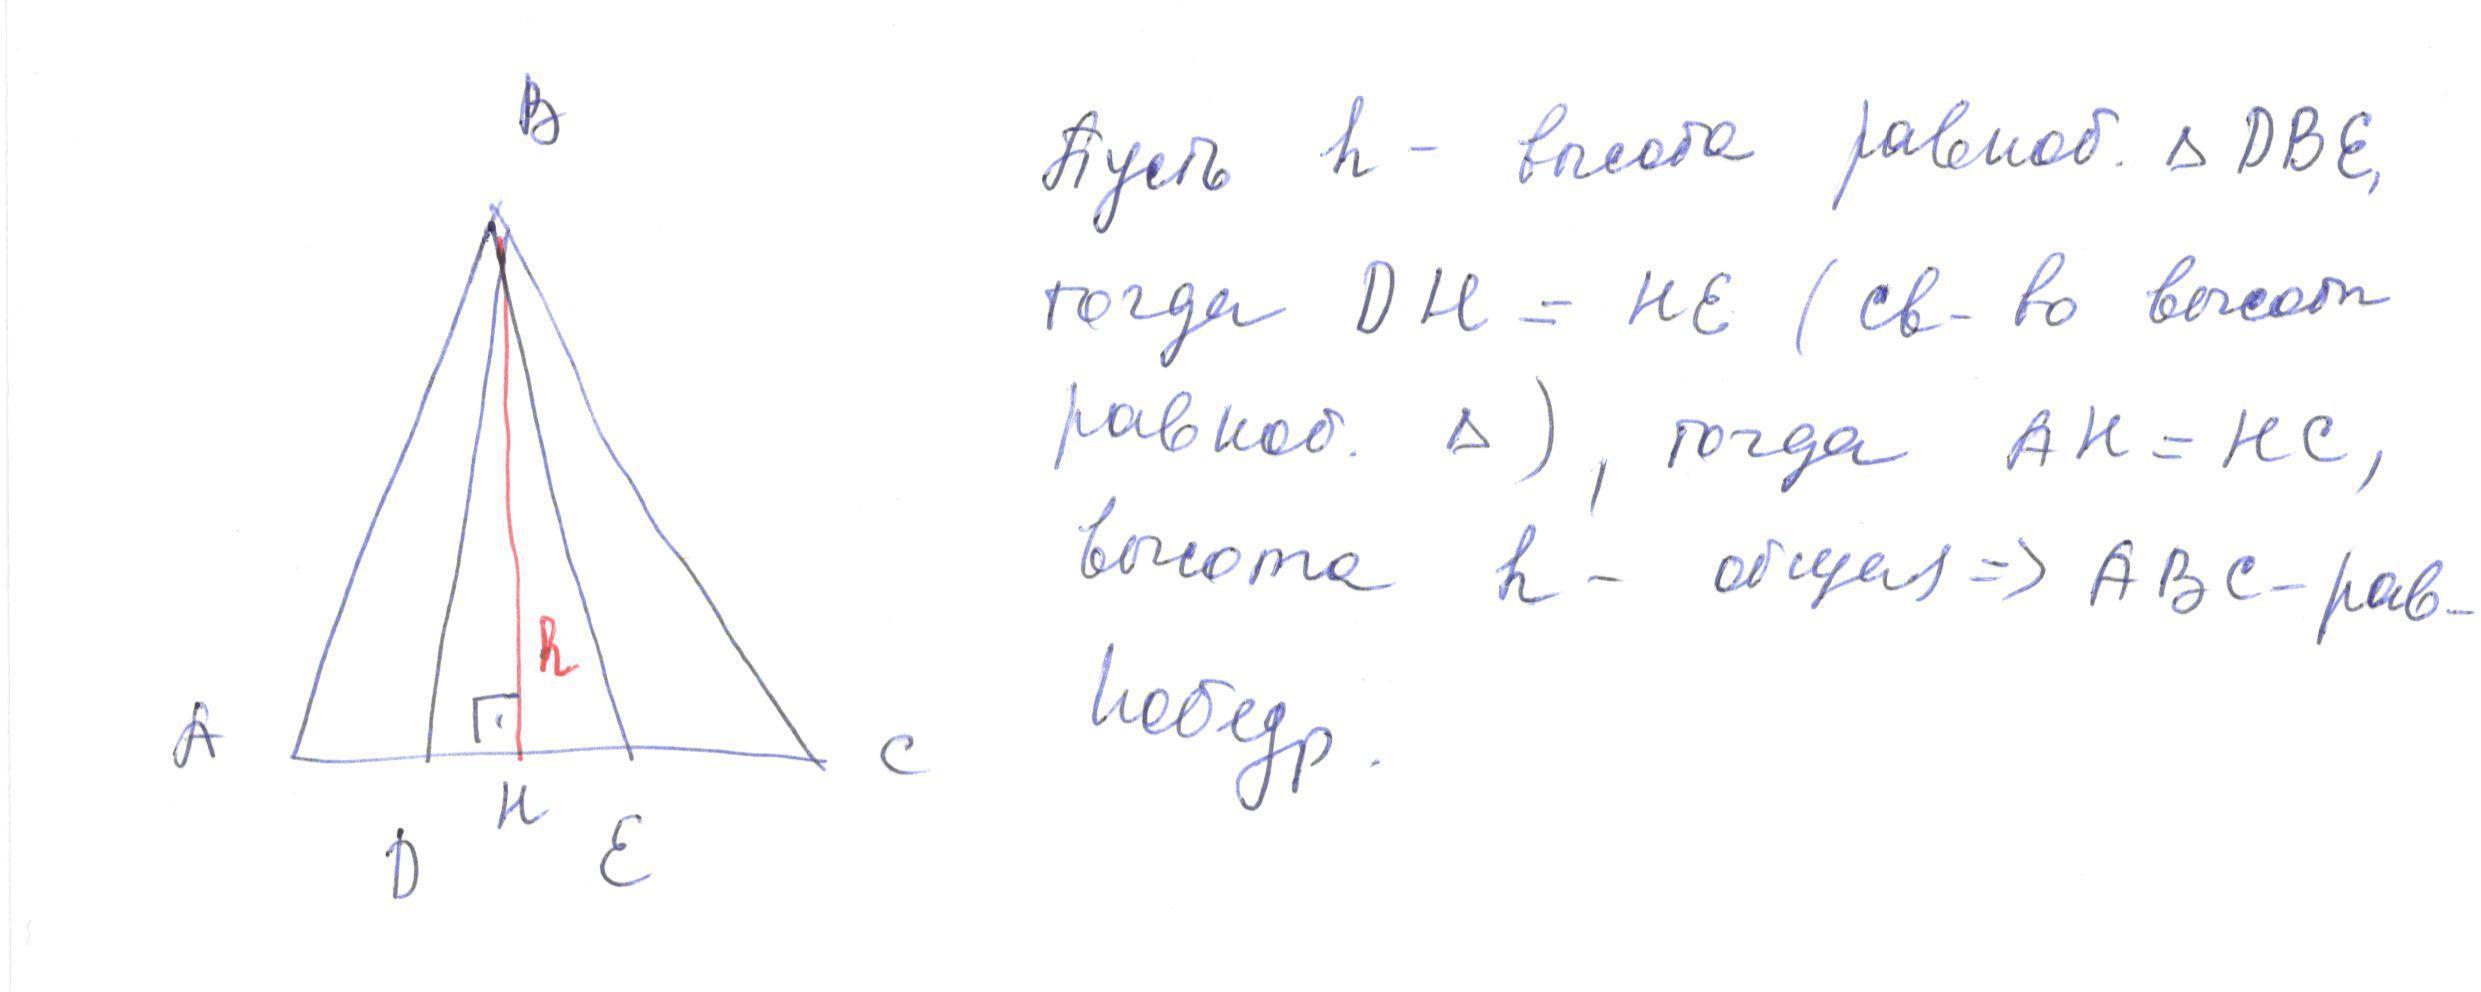 B
Пусть h - высота равноб. Δ DBE,
тогда DH = HE (св-во высот
равноб. Δ), тогда AH = HC,
высота h - общая => ABC - рав-
нобедр.
h
A
C
H
D
E